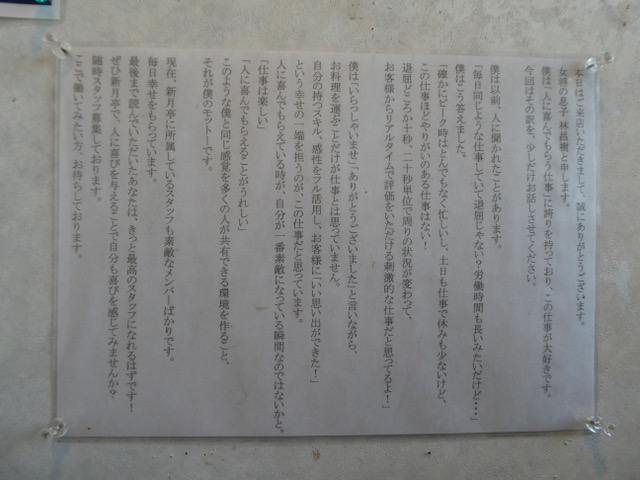 本日はご来店いただきまして、誠にありがとうございます。
女将の息子 林昌樹と申します。
僕は「人に喜んでもらう仕事」に誇りを持っており、この仕事が大好きです。
今回はその訳を、少しだけお話しさせてください。
僕は以前、人に聞かれたことがあります。
「毎日同じような仕事していて退屈じゃない?労働時間も長いみたいだけど・・・」
僕はこう答えました。
「確かにピーク時はとんでもなく忙しいし、土日も仕事で休みも少ないけど、
この仕事ほどやりがいのある仕事はない!
退屈どころか十秒、二十秒単位で周りの状況が変わって、
お客様からリアルタイムで評価をいただける刺激的な仕事だと思ってるよ!」
僕は「いらっしゃいませ」「ありがとうございました」と言いながら、
お料理を運ぶことだけが仕事とは思っていません。
自分の持つスキル、感性をフル活用し、お客様に「いい思い出ができた!」
という幸せの一端を担うのが、この仕事だと思っています。
人に喜んでもらえている時が、自分が一番素敵になっている瞬間なのではないかと。
「仕事は楽しい」
「人に喜んでもらえることがうれしい」
このような僕と同じ感覚を多くの人が共有できる環境を作ること、
それが僕のモットーです。
現在、新月亭に所属しているスタッフも素敵なメンバーばかりです。
毎日幸せをもらっています。
最後まで読んでいただいたあなたは、きっと最高のスタッフになれるはずです!
ぜひ新月亭で、人に喜びを与えることで自分も喜びを感じてみませんか?
随時スタッフ募集しております。
ここで働いてみたい方、お待ちしております。